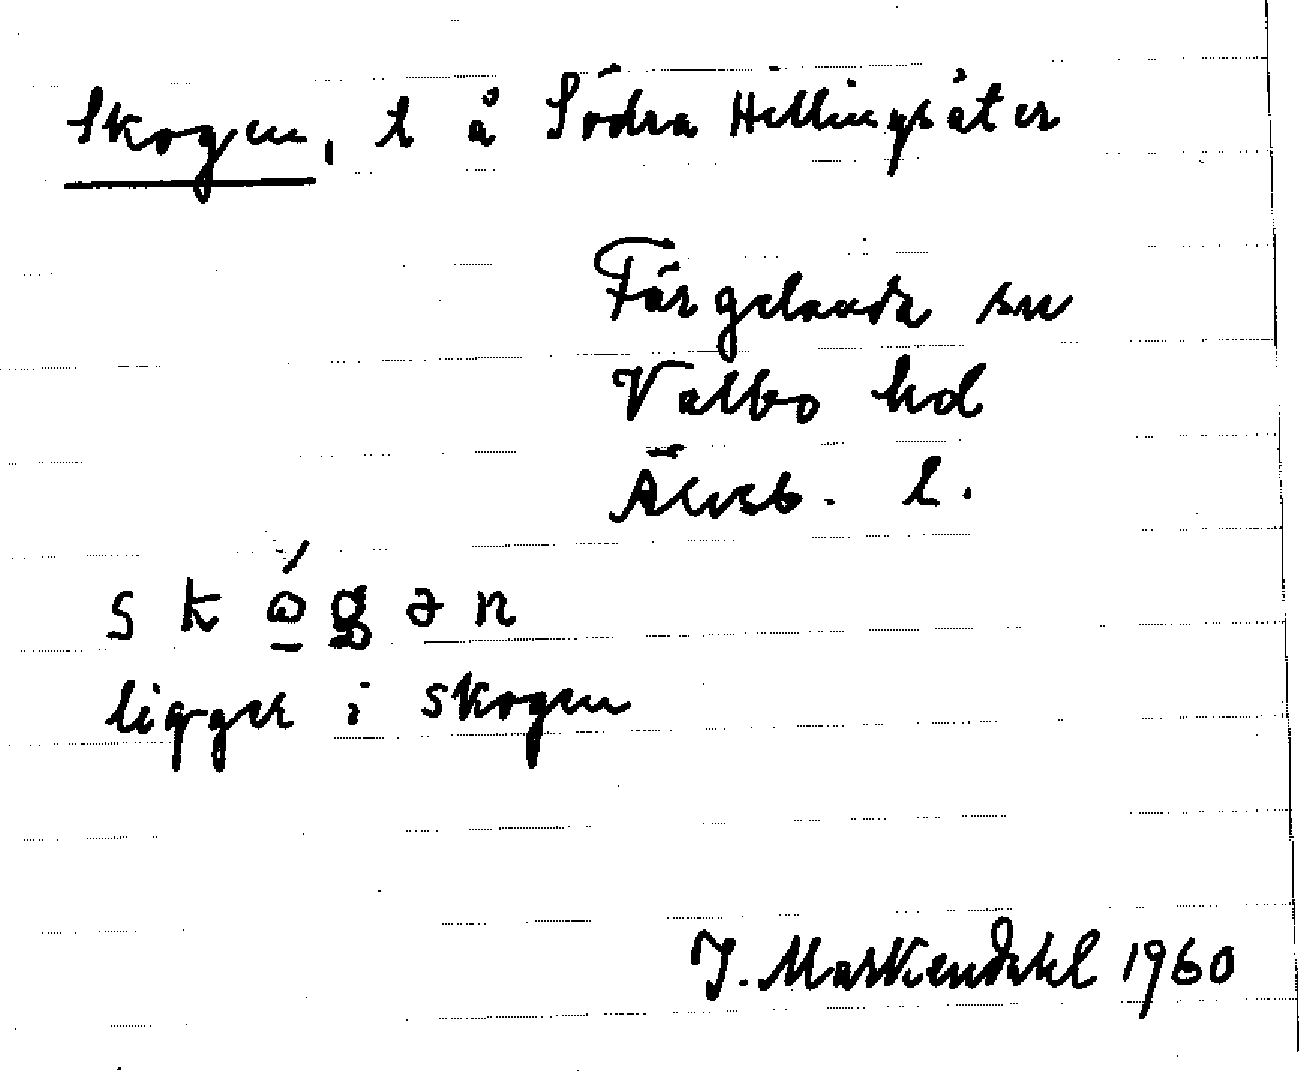 Skogen, t å Södra Hellingsäter
Färgelanda sn
Valbo hd
Älvsb. l.
s k ó̱ g ə n
ligger i skogen
J. Markendahl 1960